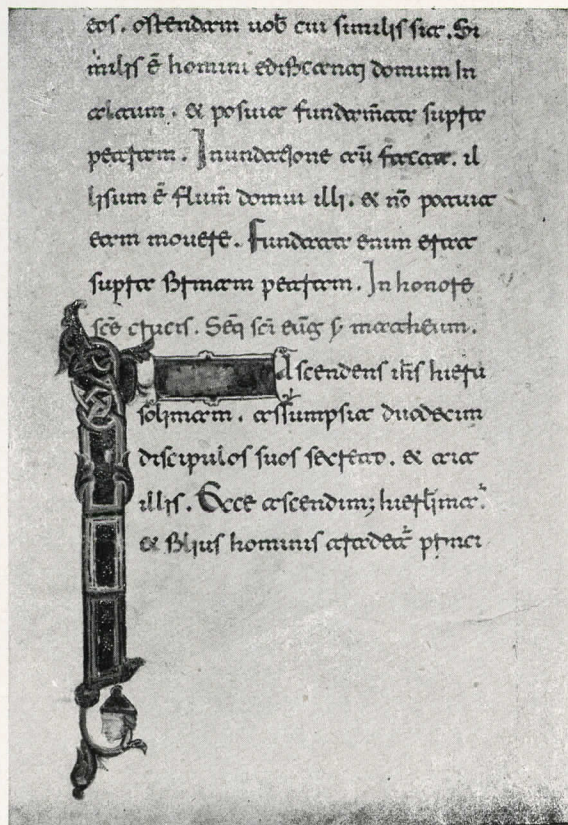 eos. ostendam uob̄ cui similis sit. Si
milis ē homini edificanti domum In
altum. & posuit fundam̄ta supra
petram. Inundatione aū facta. il
lisum ē flum̄ domui illi. & nō potuit
eam mouere. Fundata enim erat
supra firmam petram. In honore
scē crucis. Seq̄ scī eūg s̄ matheum.
Ascendens ih̄s hieru
solimam. assumpsit duodecim
discipulos suos secreto. & ait
illis. Ecce ascendim; hierl̄imā.
& filius hominis tradet̄ princi